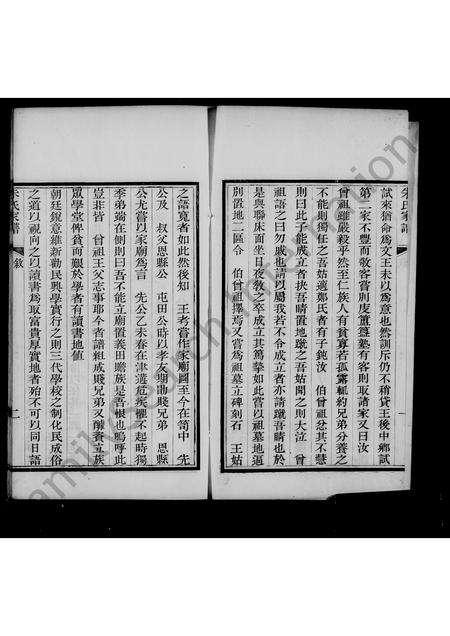 朱氏家譜
試來猶命爲文王未以爲意也然訓斥仍不稍貸王後中鄉試
第二家不豐而敎客嘗則皮置蠶塾有客則取諸家又日汝
曾祖雖嚴毅乎然至仁族人有貧寡若孤煢輒約兄弟分養之
不能則獨任之吾姑適鄭氏者有子鈍汝 伯曾祖忿其不慧
則曰此子能成立者抉吾睛置地蹴之吾姑聞之則大泣 曾
祖語之曰勿戚也請以屬我若不令成立者亦請蹴吾睛也於
是與聯床而坐日夜敎之卒成立其篤摯如此嘗以祖墓地逼
別置地二區令 伯曾祖擇焉又嘗爲祖墓立碑刻石 王姑
之語寬者如此然後知 王考嘗作家廟圖至今在笥中 先
公及 叔父恩縣公 屯田公時以孝友期勖兄弟 恩縣
公尤嘗以家廟爲言 先公乙未春在津遘危疾櫂不起時獨
季弟端在側則曰吾不能立廟置義田贍族是吾恨也嗚呼此
豈非皆 曾祖王父志事耶今者譜粗成賤兄弟又醵資立族
眾學堂俾貧而艱於學者有讀書地値
朝廷銳意維新勸民興學實行之則三代學校之制化民成俗
之道以視向之以讀書爲取富貴厚實地者殆不可以同日語
朱氏家譜 敘 二
Family Search International